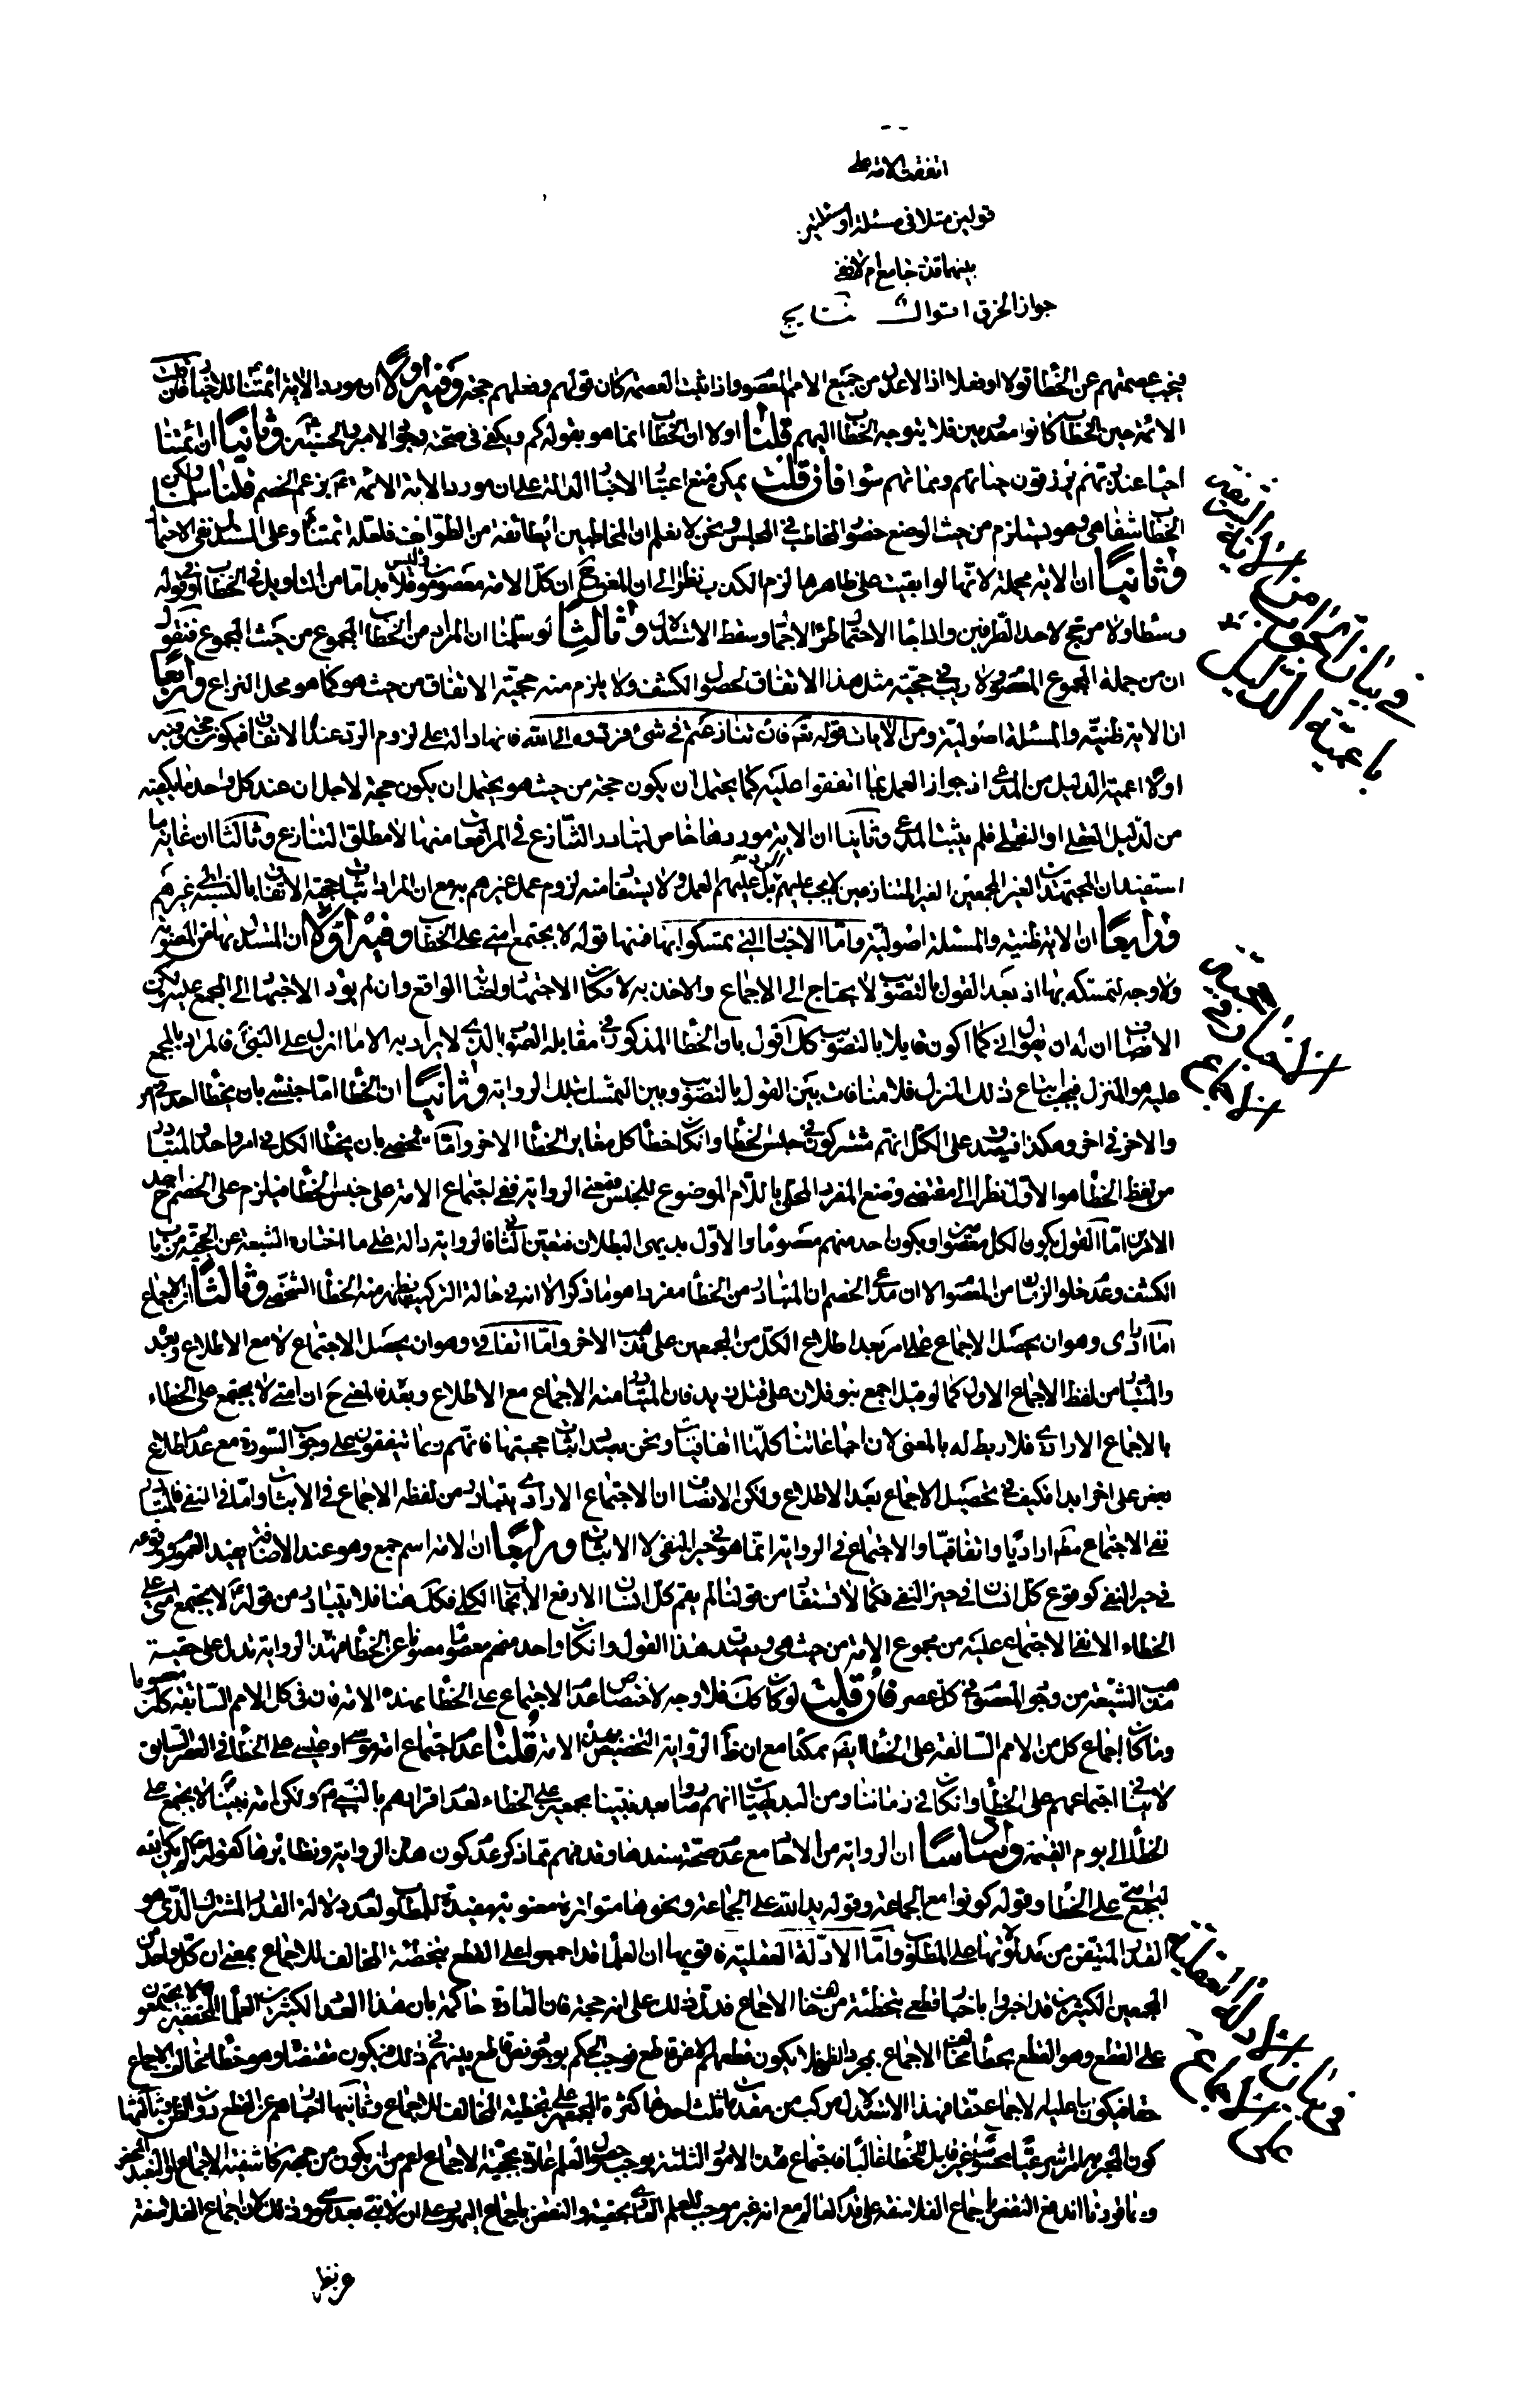 اتفقت الامة على
قولين مثلا فى مسئلة او مسئلتين
بينهما قدر جامع ام لا ففى
جواز الخرق
فيجب عصمتهم عن الخطأ قولا او فعلا اذ لا اعدل من جميع الامم المعصوم واذا ثبت العصمة كان قولهم وفعلهم حجة وفيه اولا ان مورد الاية ائمتنا للاخبار فان قلت
الائمة حين الخطاب كانوا معدومين فلا يتوجه الخطاب اليهم قلنا اولا ان الخطاب انما هو بقوله كم ويكفى فى صحته وجود الامير والحسنين وثانيا ان ائمتنا
احياء عند ربهم يرزقون حياتهم ومماتهم سواء فان قلت يمكن منع اعتبار الاخبار الدالة على ان مورد الاية الائمة بزعم الخصم قلنا سلمنا ولكن
الخطاب شفاهى وهو يستلزم من حيث الوضع حضور المخاطب فى المجلس ونحن لا نعلم ان المخاطبين اى طائفة من الطوائف فلعله ائمتنا وعلى المستدل نفى الاحتمال
وثانيا ان الاية مجملة لانها لو ابقيت على ظاهرها لزم الكذب نظرا الى ان المفروض ان كل الامة معصومون وليس فلا بد اما من التاويل فى الخطاب او فى قوله
وسطا ولا مرجح لاحد الطرفين واذا جاء الاحتمال طرء الاجمال وسقط الاستدلال وثالثا لو سلمنا ان المراد من الخطاب المجموع من حيث المجموع فنقول
ان من جملة المجموع المعصوم ولا ريب فى حجية مثل هذا الاتفاق لحصول الكشف ولا يلزم منه حجية الاتفاق من حيث هو كما هو محل النزاع ورابعا
ان الاية ظنية والمسئلة اصولية ومن الايات قوله تعالى فان تنازعتم فى شئ فردوه الى الله فانها دالة على لزوم الرد عند الاتفاق فيكون حجة وفيه
اولا اعمية الدليل من المدعى اذ جواز العمل بما اتفقوا عليه كما يحتمل ان يكون حجة من حيث هو يحتمل ان يكون حجة لاجل ان عند كل واحد ما يكفيه
من الدليل العقلى او النقلى فلم يثبت المدعى وثانيا ان الاية موردها خاص لتبادر التنازع فى المرافعات منها لا مطلق التنازع وثالثا ان غاية ما
استفيد ان المجتهدين الغير المجمعين الغير المتنازعين لا يجب عليهم الرد بل عليهم العمل ولا يستفاد منه لزوم عمل غيرهم به مع ان المراد اثبات حجية الاتفاق بالنسبة الى غيرهم
ورابعا ان الاية ظنية والمسئلة اصولية واما الاخبار التى تمسكوا بها فمنها قوله لا يجتمع امتى على الخطا وفيه اولا ان المستدل بها من المصوبة
ولا وجه لتمسكه بها اذ بعد القول بالتصويب لا يحتاج الى الاجماع والاخذ به لامكان الاجتهاد واصابة الواقع وان لم يؤد الاجتهاد الى المجمع عليه لكن
الانصاف ان له ان يقول انى كما اكون قايلا بالتصويب كذلك اقول بان الخطا المذكور فى مقابلة الصواب الذى لا يراد به الا ما انزل على النبى فالمراد بالمجمع
عليه هو المنزل فيجب اتباع ذلك المنزل فلا منافات بين القول بالتصويب وبين التمسك بتلك الرواية وثانيا ان الخطأ اما جنسى بان يخطأ احد فى امر
والاخر فى اخر وهكذا فيصدق على الكل انهم مشتركون فى جنس الخطأ وان كان خطأ كل مغاير الخطأ الاخر واما شخصى بان يخطأ الكل فى امر واحد والمتبادر
من لفظ الخطأ هو الاول نظرا الى مقتضى وضع المفرد المحلى باللام الموضوع للجنس فمعنى الرواية نفى اجتماع الامة على جنس الخطأ فيلزم على الخصم ح احد
الامرين اما القول بكون الكل معصومين او بكون احد منهم معصوما والاول بديهى البطلان فتعين الثانى فالرواية دالة على ما اختاره الشيعة من الحجية من باب
الكشف وعدم خلو الزمان من المعصوم الا ان يدعى الخصم ان المتبادر من الخطأ مفردا هو ما ذكر الا انه فى حالة التركيب يظهر منه الخطأ الشخصى وثالثا ان الاجماع
اما ارادى وهو ان يحصل الاجماع على امر بعد اطلاع الكل من المجمعين على مذهب الاخر واما اتفاقى وهو ان يحصل الاجتماع لا مع الاطلاع وبعده
والمتبادر من لفظ الاجماع الاول كما لو قيل اجمع بنو فلان على قتل زيد فان المتبادر منه الاجماع مع الاطلاع وبعده فالمعنى ح ان امتى لا يجتمع على الخطاء
بالاجماع الارادى فلا ربط له بالمعنى لان اجماعاتنا كلها اتفاقيات ونحن بصدد اثبات حجيتها فانهم ربما يتفقون على وجوب السورة مع عدم اطلاع
بعض على اخر ابدا فكيف فى تحصيل الاجماع بعد الاطلاع ولكن الانصاف ان الاجتماع الارادى يتبادر من لفظة الاجماع فى الاثبات واما فى النفى فالمتبادر
نفى الاجتماع مطلقا اراديا واتفاقيا والاجتماع فى الرواية انما هو فى حيز النفى لا الاثبات ورابعا ان الامة اسم جمع وهو عند الاضافة يفيد العموم ووقوعه
فى حيز النفى كوقوع كل انسان فى حيز النفى فكما لا يستفاد من قولنا لم يقم كل انسان الا رفع الايجاب الكلى فكذلك هنا فلا يتبادر من قوله لا يجتمع امتى على
الخطاء الا نفى الاجتماع عليه من مجموع الامة من حيث هى ويصدق هذا القول وان كان واحد منهم معصوما مصونا عن الخطأ فهذه الرواية تدل على حقية
مذهب الشيعة من وجود المعصوم فى كل عصر فان قلت لو كان كذلك فلا وجه لاختصاص عدم الاجتماع على الخطأ بهذه الامة فان فى كل الامم السابقة كان معصوما
وما كان اجماع كل من الامم السابقة على الخطأ ايضا ممكنا مع ان ظاهر الرواية التخصيص بهذه الامة قلنا عدم اجتماع امة موسى او عيسى على الخطأ فى العصر السابق
لا ينافى اجتماعهم على الخطأ وان كان فى زماننا ومن البديهيات انهم صاروا بعد نبينا مجمعين على الخطاء لعدم اقرارهم بالنبى ولكن امة نبينا لا يجتمع على
الخطأ الى يوم القيمة وخامسا ان الرواية من الاحاد مع عدم صحة سندها وقد فهم مما ذكر عدم كون هذه الرواية ونظائرها كقوله لم يكن الله
ليجمع امتى على الخطأ وقوله كونوا مع الجماعة وقوله يد الله على الجماعة ونحوها متواترة معنوية مفيدة للمطلوب لعدم دلالة القدر المشترك الذى هو
القدر المتيقن من مدلولاتها على المطلوب واما الادلة العقلية فاقويها ان العلماء قد اجمعوا على القطع بتخطئة المخالف للاجماع بمعنى ان كل واحد من
المجمعين الكثيرين قد اخبروا باخبار قطعى بتخطئة من خالف الاجماع فدل ذلك على انه حجة فان العادة حاكمة بان هذا العدد الكثير من العلماء المحققين لا يجتمعون
على القطع وهو القطع بخطأ مخالف الاجماع بمجرد الظن فلا يكون قطعهم الا عن قاطع فوجب الحكم بوجود نص قاطع بلغهم فى ذلك فيكون مقتضاه وهو خطأ مخالف الاجماع
حقا فيكون ما عليه الاجماع حقا فهذا الاستدلال مركب من مقدمات ثلث احدها كثرة المجمعين على تخطئة المخالف للاجماع وثانيها اخبارهم عن القطع دون الظن وثالثها
كون المخبر به امرا شرعيا محسوسا غير قابل للخطأ غالبا فاجتماع هذه الامور الثلثة يوجب حصول العلم عادة بحجية الاجماع اعم من ان يكون من جهة كاشفية الاجماع او التعبد المحض
وبما قررنا اندفع النقض باجماع الفلاسفة على قدم العالم مع انه غير موجب للعلم العادى بحقيته والنقض باجماع اليهود على ان لا نبى بعد موسى وذلك لان اجماع الفلاسفة
عن نظر
فى بيان الجواب من استدلاله بالاية الشريفة باعمية الدليل
استدلال العامة على حجية الاجماع
فى بيان استدلاله بالعقل على حجية الاجماع